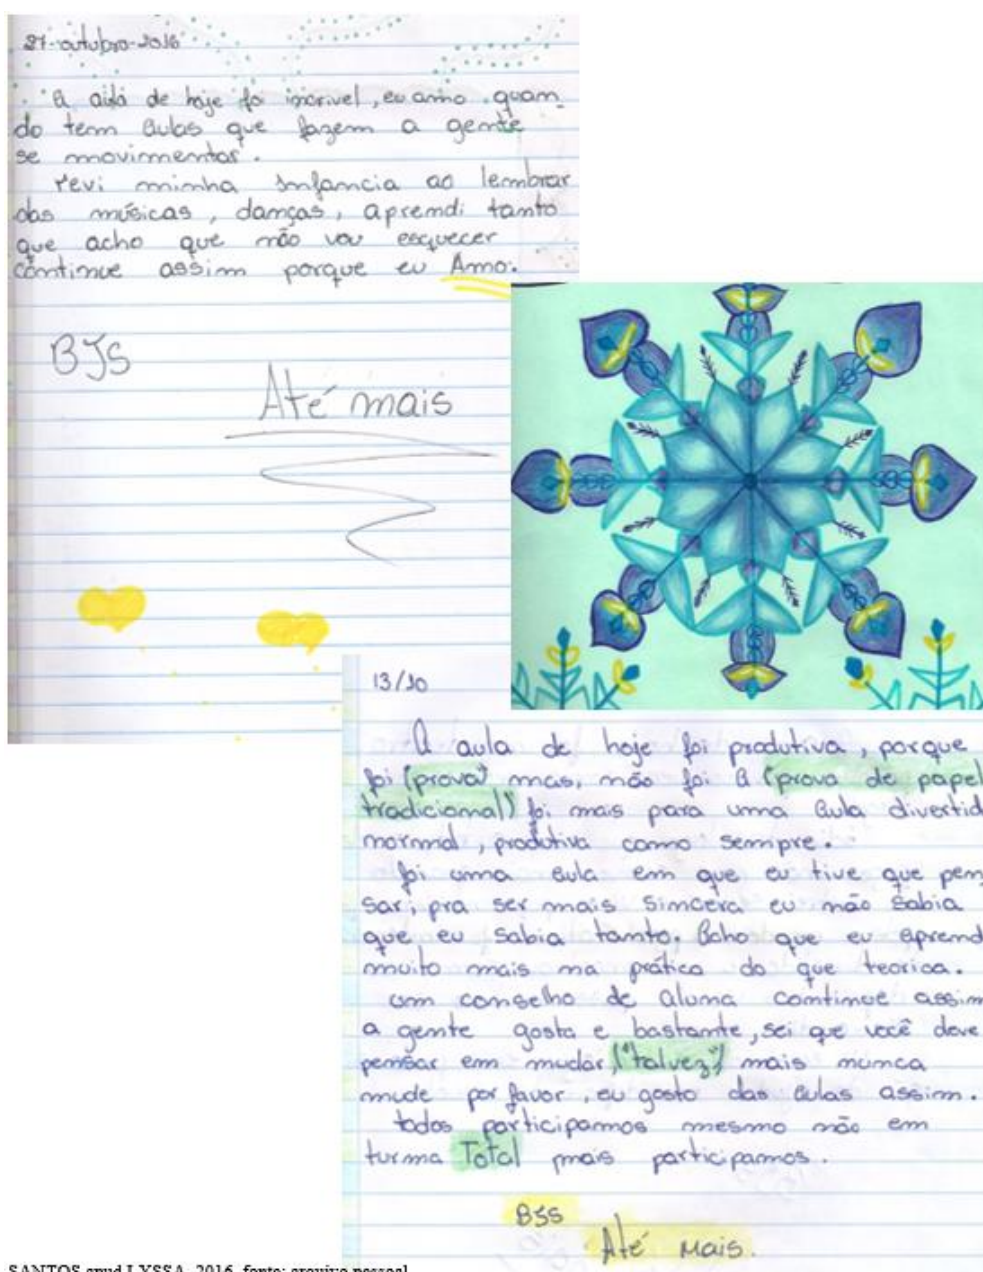 27-outubro-2016
A aula de hoje foi incrivel, eu amo quan-
do tem aulas que fazem a gente
se movimentar.
revi minha infancia ao lembrar
das músicas, danças, aprendi tanto
que acho que não vou esquecer
continue assim porque eu Amo.
BJS
Até mais
13/10
A aula de hoje foi produtiva, porque
foi (prova) mas, não foi a (prova de papel
tradicional) foi mais para uma aula divertid
normal, produtiva como sempre.
foi uma aula em que eu tive que pen-
sar, pra ser mais sincera eu não sabia
que eu sabia tanto. Acho que eu aprend
muito mais na prática do que teorica.
um conselho de aluna continue assim
a gente gosta e bastante, sei que você deve
pensar em mudar, ("talvez") mais nunca
mude por favor, eu gosto das aulas assim.
todos participamos mesmo não em
turma Total mais participamos.
BJS
Até Mais.
SANTOS apud LYSSA, 2016, fonte: arquivo pessoal